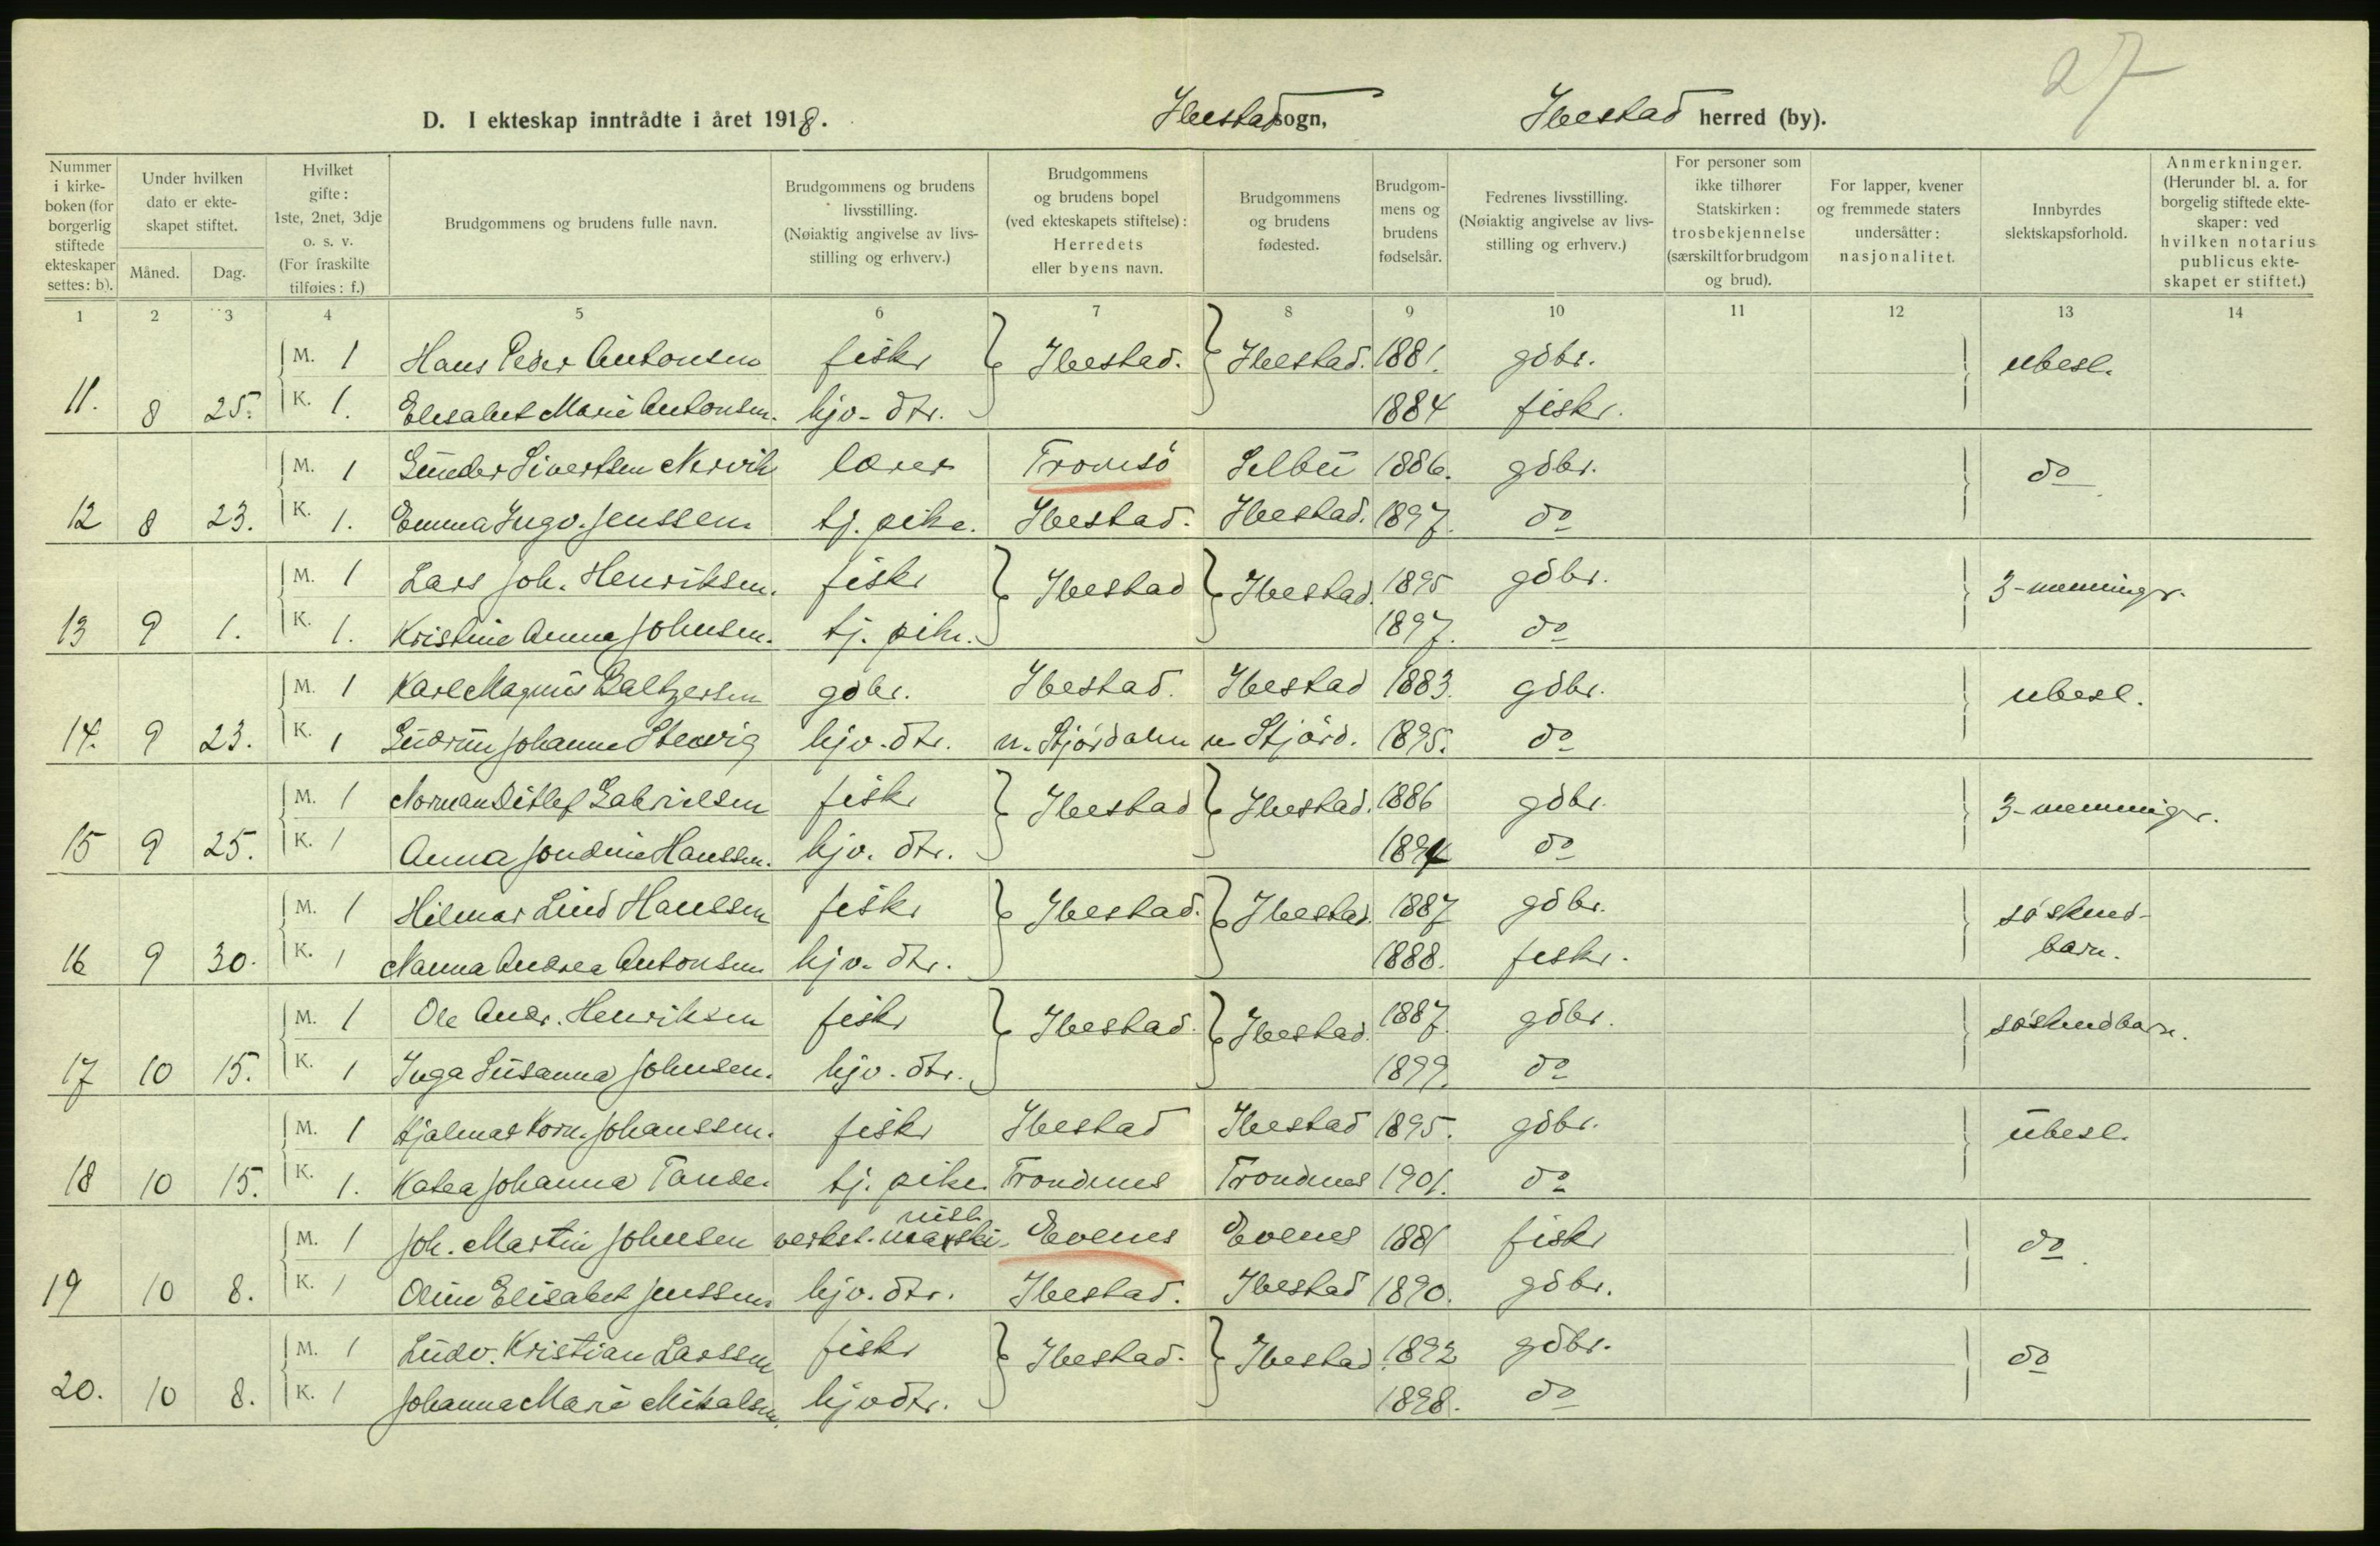 27
D. I ekteskap inntrådte i året 1918. Ibestad sogn, Ibestad herred (by).
Nummer i kirke-boken (for borgerlig stiftede ekteskaper settes: b).
Under hvilken dato er ekte-skapet stiftet.
Måned. Dag.
Hvilket gifte: 1ste, 2net, 3dje o. s. v. (For fraskilte tilføies: f.)
Brudgommens og brudens fulle navn.
Brudgommens og brudens livsstilling. (Nøiaktig angivelse av livs-stilling og erhverv.)
Brudgommens og brudens bopel (ved ekteskapets stiftelse): Herredets eller byens navn.
Brudgommens og brudens fødested.
Brudgom-mens og brudens fødselsår.
Fedrenes livsstilling. (Nøiaktig angivelse av livs-stilling og erhverv.)
For personer som ikke tilhører Statskirken: trosbekjennelse (særskilt for brudgom og brud).
For lapper, kvener og fremmede staters undersåtter: nasjonalitet.
Innbyrdes slektskapsforhold.
Anmerkninger. (Herunder bl. a. for borgelig stiftede ekte-skaper: ved hvilken notarius publicus ekte-skapet er stiftet.)
1 2 3 4 5 6 7 8 9 10 11 12 13 14
M. 1 Hans Peder Antonsen fisker Ibestad. Ibestad. 1881. gdbr. ubesl.
11. 8 25. K. 1. Elisabet Marie Antonsen. hjv. dtr. 1884 fisker.
M. 1 Gunder Sivertsen Nervik lærer Tromsö Selbu 1886. gdbr. do
12 8 23. K. 1. Emma Ingv. Jenssen. tj. pike. Ibestad. Ibestad. 1897. do
M. 1 Lars Joh. Henriksen. fisker Ibestad Ibestad. 1895 gdbr. 3-menninger.
13 9 1. K. 1. Kristine Anna Johnsen. tj. pike. 1897. do
M. 1 Karl Magnus Baltzersen gdbr. Ibestad. Ibestad 1883. gdbr. ubesl.
14. 9 23. K. 1 Gudrun Johanne Stenvig hjv. dtr. n. Stjördalen n. Stjörd. 1895. do
M. 1 Norman Ditlef Gabrielsen fisker Ibestad Ibestad. 1886 gdbr. 3-menninger.
15 9 25. K. 1 Anna Jondine Hanssen. hjv. dtr. 1894 do
M. 1 Hilmar Lind Hanssen fisker Ibestad. Ibestad. 1887 gdbr. söskend-
16 9 30. K. 1 Nanna Andrea Antonsen hjv. dtr. 1888. fisker. barn.
M. 1 Ole Andr. Henriksen fisker Ibestad. Ibestad. 1887. gdbr. söskendbarn.
17 10 15. K. 1 Inga Susanna Johnsen. hjv. dtr. 1899. do
M. 1 Hjalmar Korn. Johanssen. fisker Ibestad Ibestad 1895. gdbr. ubesl.
18 10 15. K. 1. Katea Johanna Tande. tj. pike. Trondenes Trondenes 1901. do
M. 1 Joh. Martin Johnsen verkst. Evenes Evenes 1881 fisker do
19 10 8. K. 1 Oline Elisabet Jenssen. hjv. dtr. Ibestad. Ibestad 1890. gdbr.
M. 1 Ludv. Kristian Larssen fisker Ibestad. Ibestad 1892 gdbr. do
20. 10 8. K. 1 Johanna Marie Mikalsen. hjv dtr. 1898. do